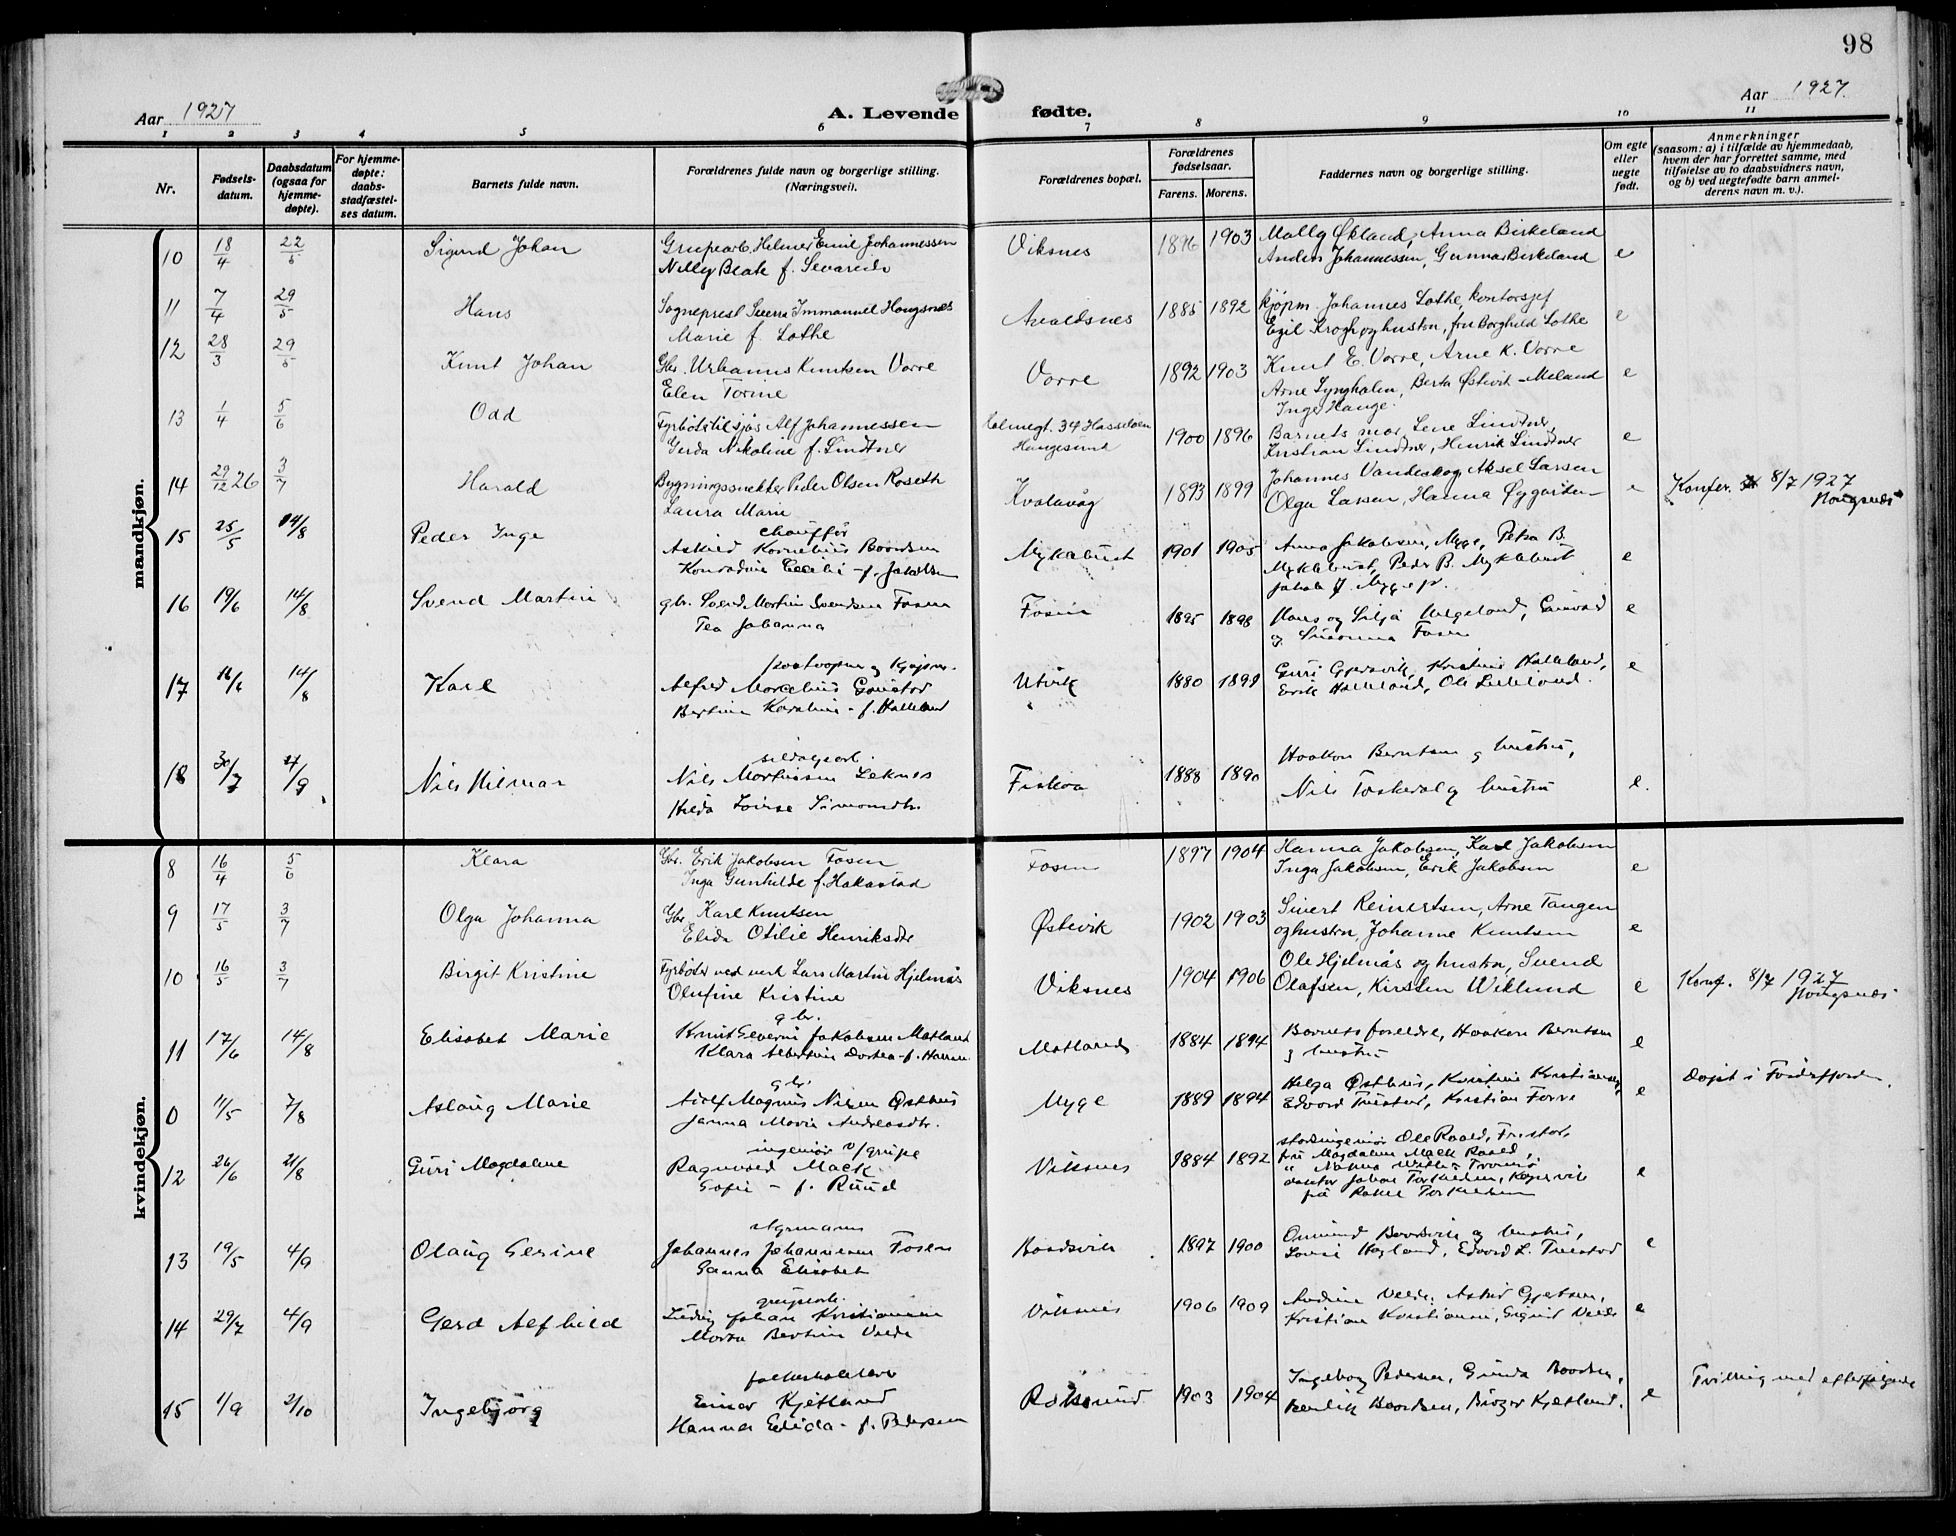 98
Aar 1927
A. Levende fødte.
Aar 1927.
1 2 3 4 5 6 7 8 9 10 11
Nr.
Fødsels-
datum.
Daabsdatum
(ogsaa for
hjemme-
døpte).
For hjemme-
døpte:
daabs-
stadfæstel-
ses datum.
Barnets fulde navn.
Forældrenes fulde navn og borgerlige stilling.
(Næringsvei).
Forældrenes bopæl.
Forældrenes
fødselsaar.
Farens. Morens.
Faddernes navn og borgerlige stilling.
Om egte
eller
uegte
født.
Anmerkninger
(saasom: a) i tilfælde av hjemmedaab,
hvem der har forrettet samme, med
tilføielse av to daabsvidners navn,
og b) ved uegtefødte barn anmel-
derens navn m. v.).
mandkjøn.
10 18/4 22/5 Sigurd Johan Grupearb. Helmer Emil Johannessen Viksnes 1896 1903 Mally Økland, Anna Birkeland
Nelly Beate f. Sevareid Anders Johannessen, Gunnar Birkeland e
11 7/4 29/5 Hans Sogneprest Sverra Immanuel Hougsnæs Avaldsnes 1885 1892 kjøpm. Johannes Lothe, kontorsjef
Marie f. Lothe Egil Krogh og hustru, fru Borghild Lothe e
12 28/3 29/5 Knut Johan Gbr. Urbanus Knutsen Vorre Vorre 1892 1903 Knut E. Vorre, Arne K. Vorre
Elen Torine Arne Lyngholm, Berta Østevik-Meland e
Inger Hauge.
13 1/4 5/6 Odd Fyrbøter tilsjøs Alf Johannessen Holmegt. 34 Hasseløen 1900 1896 Barnets mor, Lene Lindtner,
Gerda Nikoline f. Lindtner Haugesund Kristian Lindtner, Henrik Lindtner e
14 29/12 26 3/7 Harald Bygningssnekker Peder Olsen Roseth Kvalavåg 1893 1899 Johannes Vandeskog, Aksel Larsen
Laura Marie Olga Larsen, Hanna Øygarden e Konfer. 8/7 1927
Hougsnæs
15 25/5 14/8 Peder Inge chauffør
Askild Kornelius Baardsen Myklebust 1901 1905 Anna Jakobsen, Myge, Petra B.
Konradine Cecelie f. Jakobsen Myklebust, Peder B. Myklebust e
Jakob J. Myge
16 19/6 14/8 Svend Martin gbr. Svend Martin Svendsen Fosen Fosen 1895 1898 Hans og Silja Helgeland, Gunvald e
Tea Johanna og Susanna Fosen
17 16/6 14/8 Karl postopner og kjøpm.
Alfred Marcelius Gaustad Utvik 1880 1899 Guri Gjersvik, Kristine Halleland, e
Bertine Karoline f. Halleland Erik Halleland, Ole Lilleland.
18 30/7 4/9 Nils Hilmar sildexport.
Nils Martinsen Leknes Fiskaa 1888 1890 Haakon Berntsen og hustru,
Hilda Lovise Simonsdtr. Nils Toskedal og hustru e.
kvindekjøn.
8 16/4 5/6 Klara Gbr. Erik Jakobsen Fosen Fosen 1897 1904 Hanna Jakobsen, Karl Jakobsen
Inga Gunhilde f. Hakastad Inga Jakobsen, Erik Jakobsen e
9 17/5 3/7 Olga Johanna Gbr. Karl Knutsen Østevik 1902 1903 Sivert Reinertsen, Arne Tangen
Elida Otilie Henriksdtr og hustru, Johanne Knutsen e
10 16/5 3/7 Birgit Kristine Fyrbøter ved verk Lars Martin Hjelmås Viksnes 1904 1906 Ole Hjelmås og hustru, Svend
Olufine Kristine Olafsen, Kirsten Wiklund e Konf. 8/7 1927
Hougsnæs
11 17/6 14/8 Elisabet Marie gbr.
Knut Severin Jakobsen Matland Matland 1884 1894 Barnets foreldre, Haakon Berntsen
Klara Albertine Dortea f. Hansen og hustru e
0 11/5 7/8 Aslaug Marie gbr.
Adolf Magnus Nilsen Østhus Myge 1889 1894 Helga Østhus, Kristine Kristiansen, e Døpt i Førdesfjorden.
Janna Marie Andreasdtr. Edvard Tuestad, Kristian Førre
12 26/6 21/8 Guri Magdalene ingeniør v/grupe
Ragnvald Mack Viksnes 1884 1892 Ole Raald,
Sofie f. Ruud fru Magdalena Mack Raald,
Johan Torkildsen, Kopervik e
fru Torkildsen
13 19/5 4/9 Olaug Gesine styrmann
Johannes Johannesen Fosen Baadsvik 1897 1900 Omund Baadsvik og hustru,
Ganna Elisabet Hagland, Edvard L. Tuestad e
14 29/7 4/9 Gerd Alfhild grupearb.
Ludvig Johan Kristiansen Viksnes 1906 1909 Andrine Velde, Astrid Gjertsen,
Marta Bertine Velde Kristian Kristiansen, Sigurd Velde e
15 1/9 2/10 Ingebjørg
Einar Kjetland Røksund 1903 1904 Ingeborg Pedersen, Gunda Baardsen, e Tvilling med efterfølgende
Hanna Elida f. Pedersen Henrik Baardsen, Birger Kjetland.